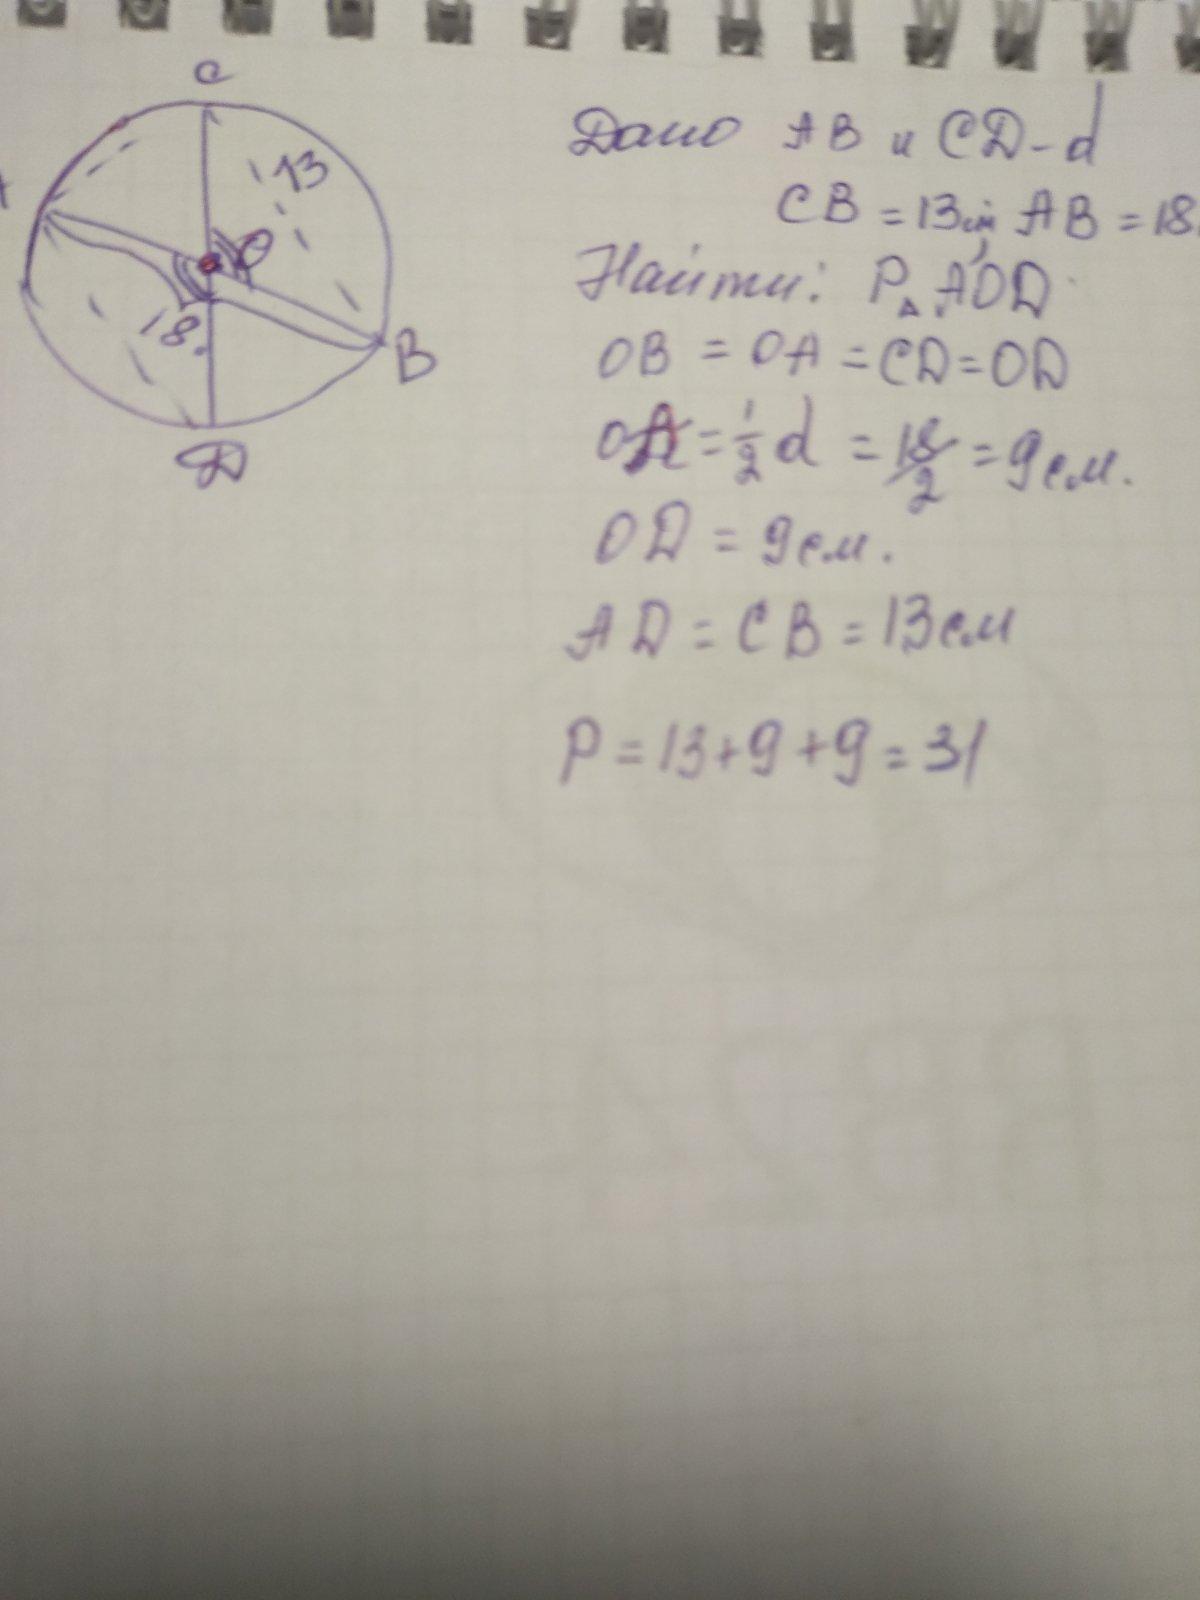 C
13
O
18.
B
D
Дано AB и CD - d
CB = 13см, AB = 18
Найти: P△ AOD
OB = OA = CD = OD
OA = 1/2 d = 18/2 = 9 см.
OD = 9 см.
AD = CB = 13 см
P = 13 + 9 + 9 = 31